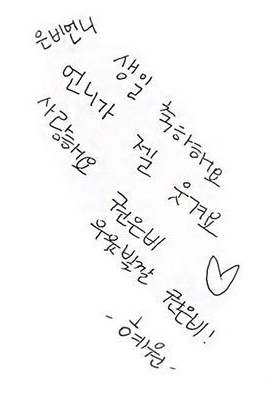 은비언니
생일 축하해요
언니가 젤 웃겨요
사랑해요
권은비
우윳빛깔 권은비!
- 혜원 -